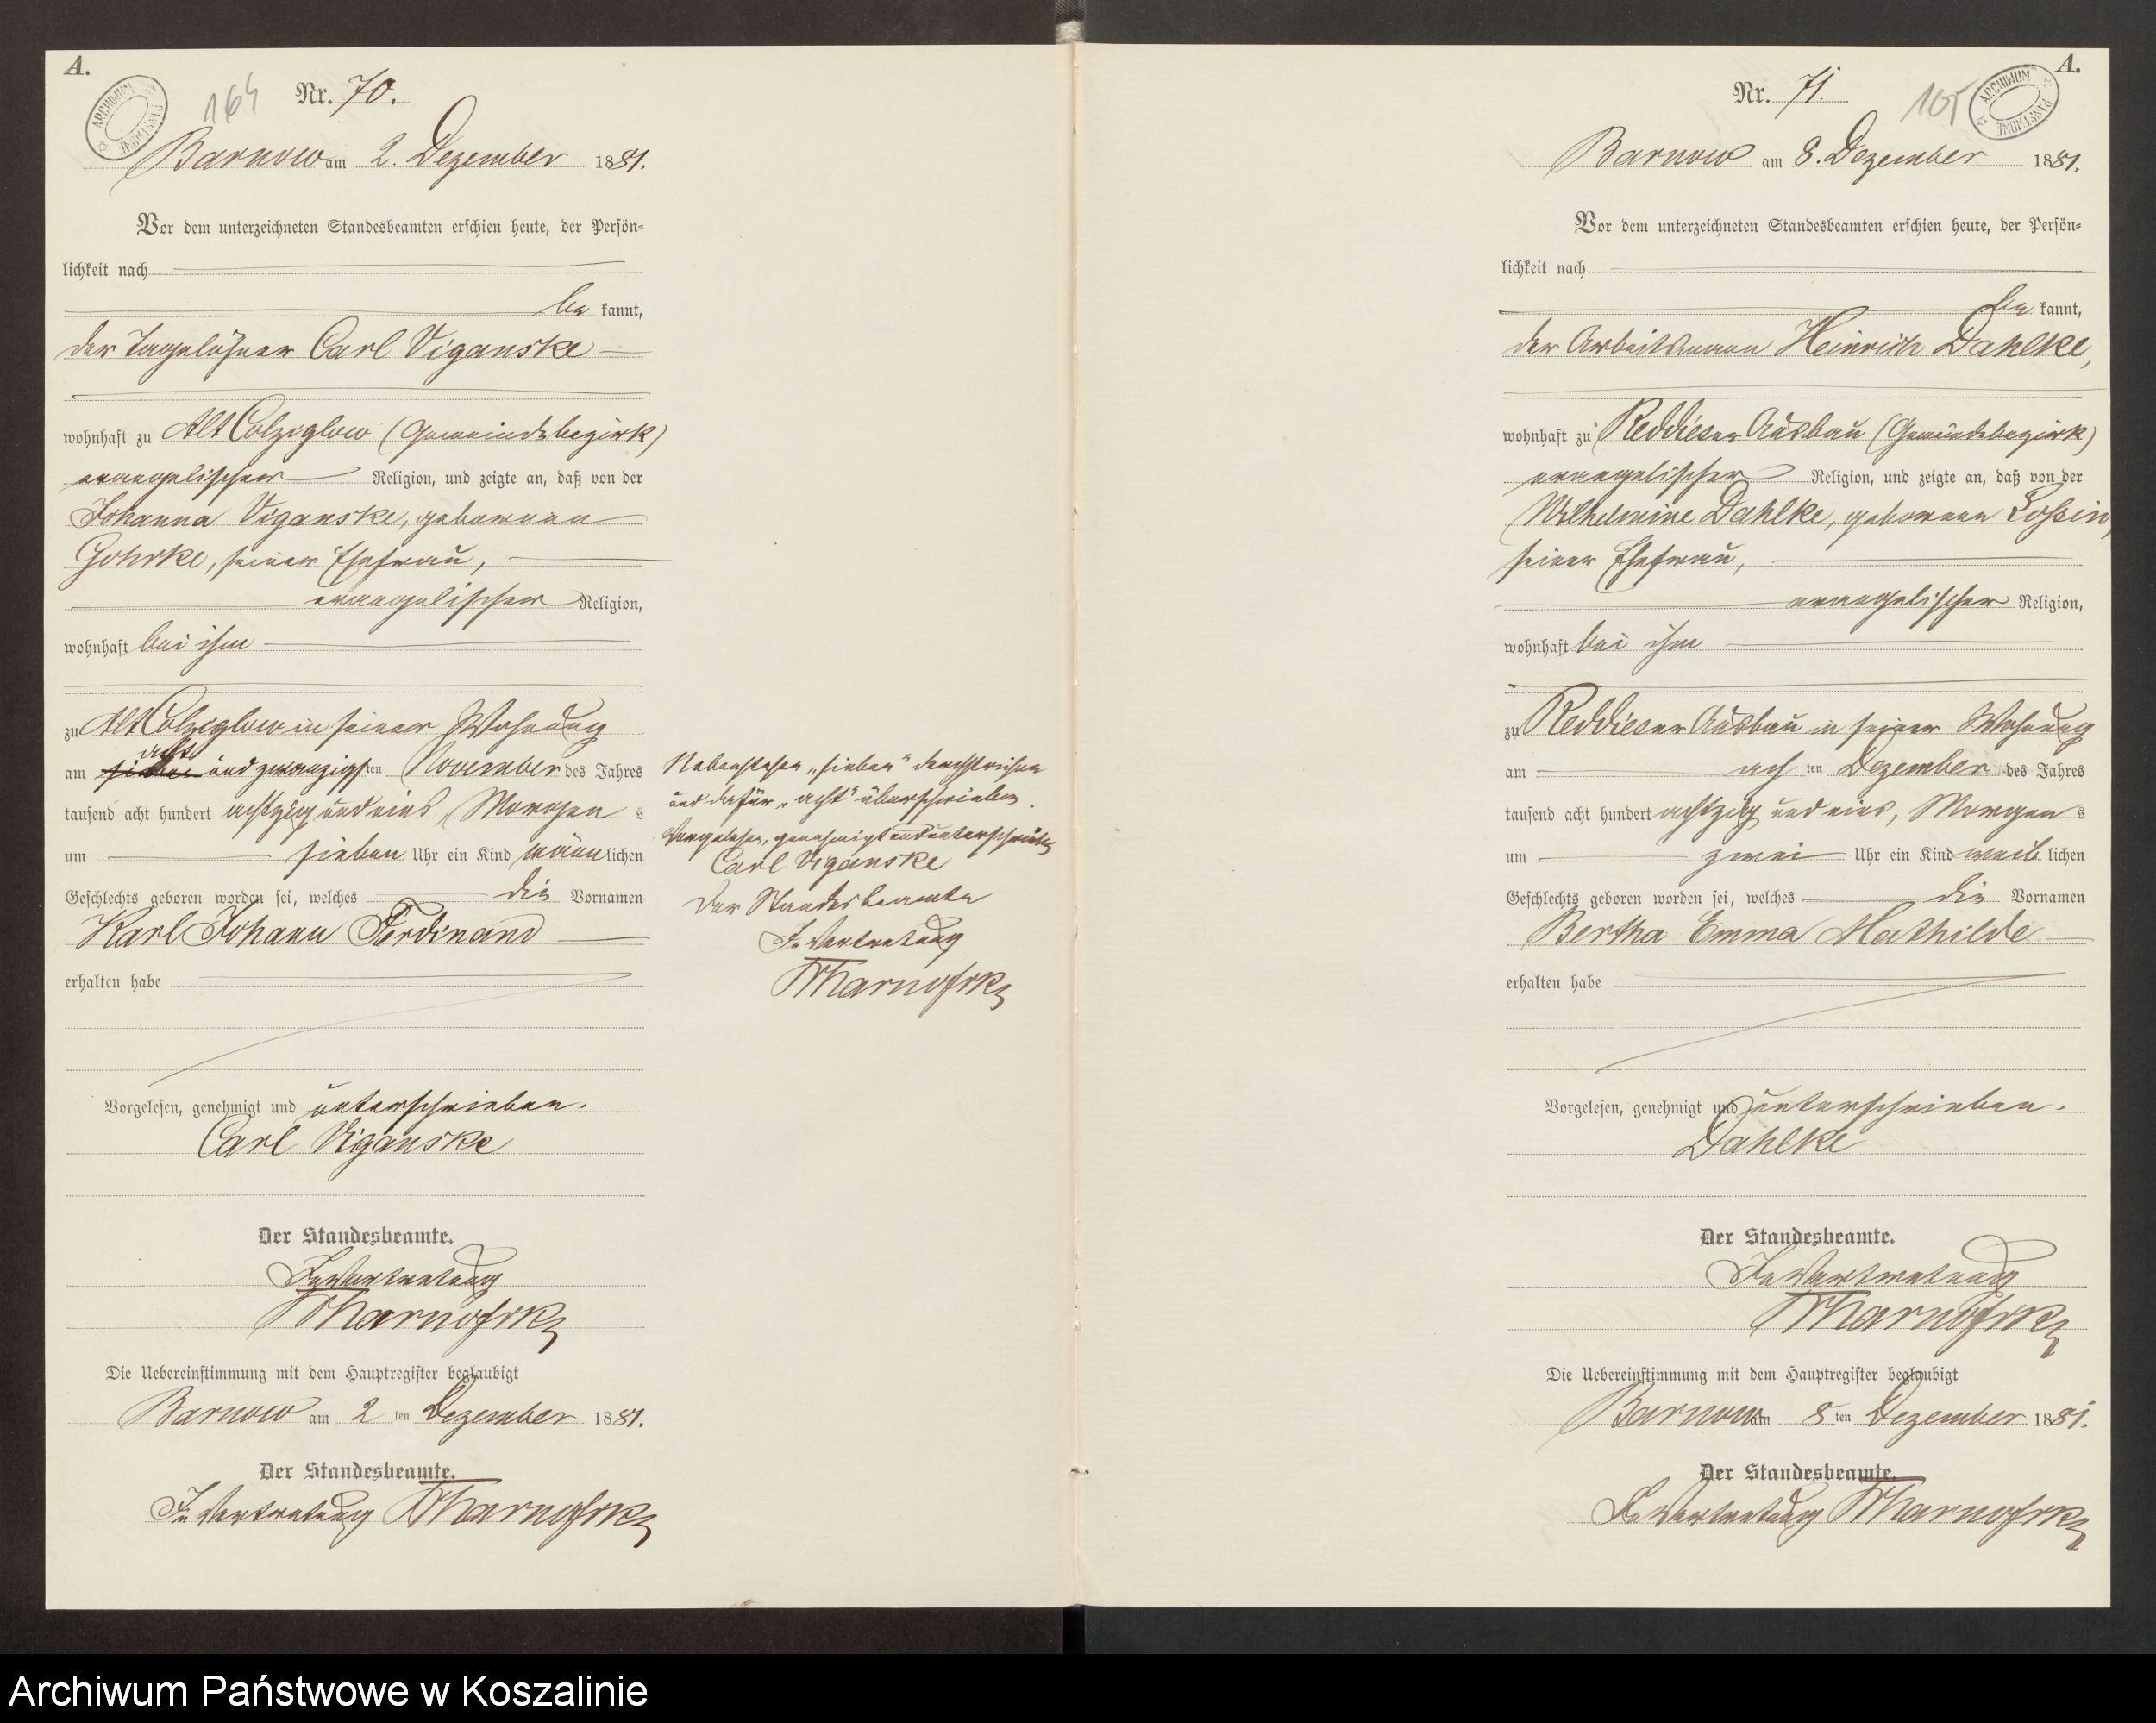 A.
ARCHIWUM PAŃSTWOWE
164
Nr. 70.
Barnow am 2. Dezember 1881.
Vor dem unterzeichneten Standesbeamten erschien heute, der Persön-
lichkeit nach
be kannt,
der Tagelöhner Carl Viganske
wohnhaft zu Alt Colziglow (Gemeindebezirk)
evangelischer Religion, und zeigte an, daß von der
Johanna Viganske, geborenen
Gohrke, seiner Ehefrau,
evangelischer Religion,
wohnhaft bei ihm
zu Alt Colziglow in seiner Wohnung
acht
am sieben und zwanzigsten November des Jahres
tausend acht hundert achtzig und eins, Morgen s
um sieben Uhr ein Kind männlichen
Geschlechts geboren worden sei, welches die Vornamen
Karl Johann Ferdinand
erhalten habe
Vorgelesen, genehmigt und unterschrieben.
Carl Viganske
Der Standesbeamte.
In Vertretung
Die Uebereinstimmung mit dem Hauptregister beglaubigt
Barnow am 2 ten Dezember 1881.
Der Standesbeamte.
In Vertretung
Nebenstehen „sieben" durchstrichen
und dafür „acht" überschrieben.
Vorgelesen, genehmigt und unterschrieben
Carl Viganske
Der Standesbeamte
In Vertretung
A.
ARCHIWUM PAŃSTWOWE
105
Nr. 71.
Barnow am 8. Dezember 1881.
Vor dem unterzeichneten Standesbeamten erschien heute, der Persön-
lichkeit nach
be kannt,
der Arbeitsmann Heinrich Dahlke,
wohnhaft zu Reddieser Ausbau (Gemeindebezirk)
evangelischer Religion, und zeigte an, daß von der
Wilhelmine Dahlke, geborenen Lossin,
seiner Ehefrau,
evangelischer Religion,
wohnhaft bei ihm
zu Reddieser Ausbau in seiner Wohnung
am ach ten Dezember des Jahres
tausend acht hundert achtzig und eins, Morgen s
um zwei Uhr ein Kind weib lichen
Geschlechts geboren worden sei, welches die Vornamen
Bertha Emma Mathilde
erhalten habe
Vorgelesen, genehmigt und unterschrieben.
Dahlke
Der Standesbeamte.
In Vertretung
Die Uebereinstimmung mit dem Hauptregister beglaubigt
Barnow am 8 ten Dezember 1881.
Der Standesbeamte.
In Vertretung
Archiwum Państwowe w Koszalinie